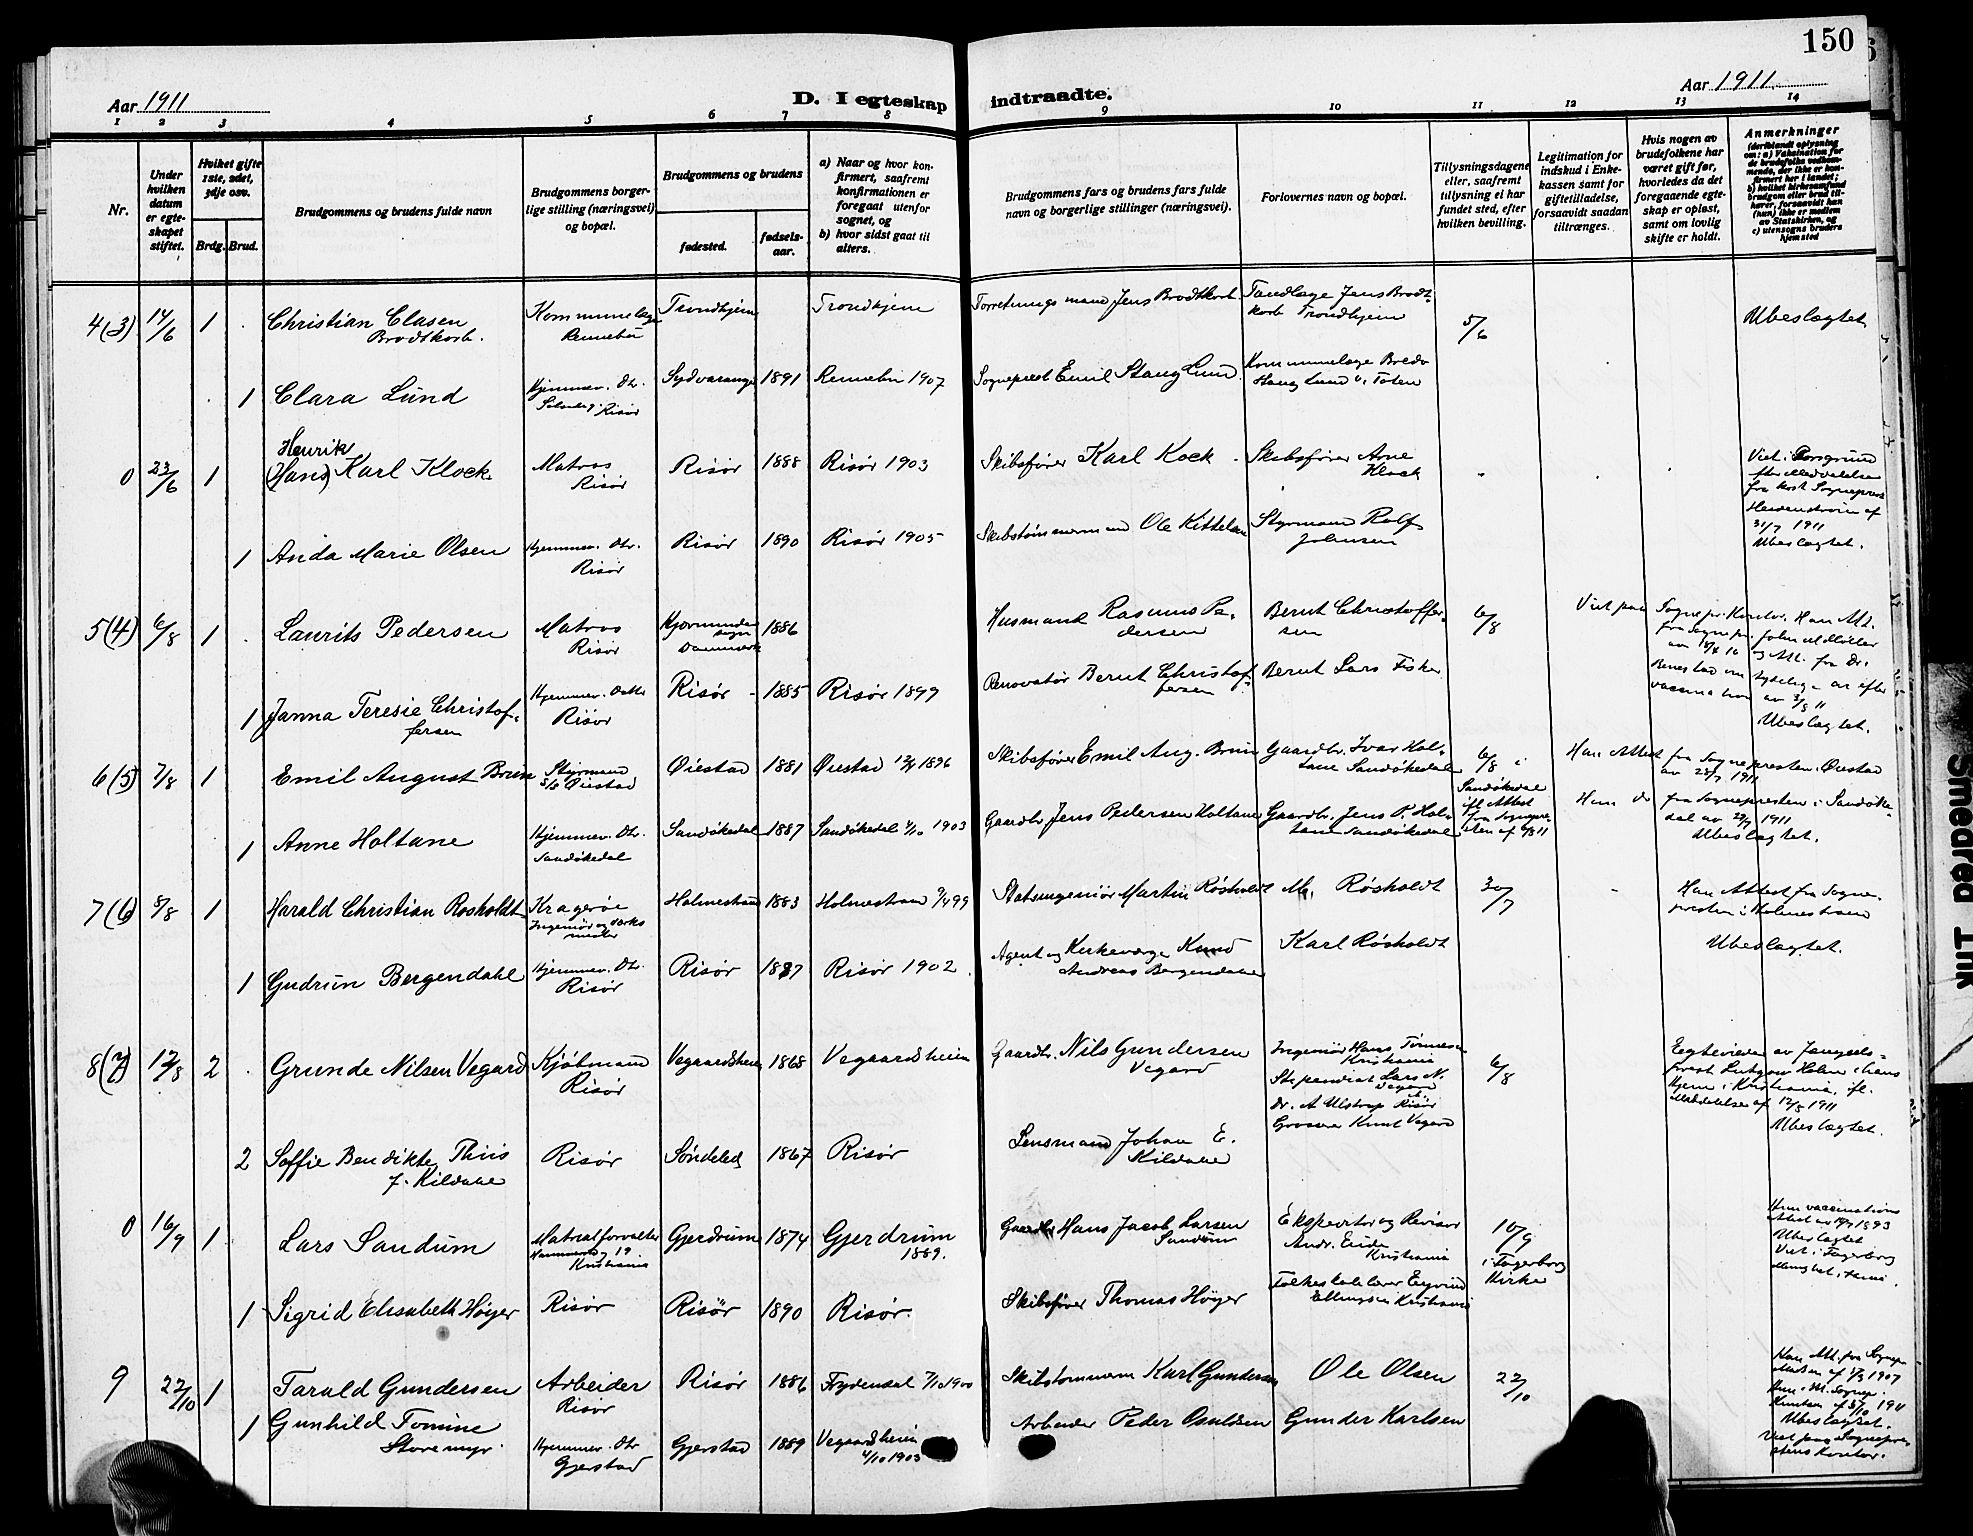 150
Aar 1911
D. I egteskap indtraadte.
Aar 1911
1 2 3 4 5 6 7 8 9 10 11 12 13 14
Nr.
Under hvilken datum er egteskapet stiftet.
Hvilket gifte 1ste, 2det, 3dje osv.
Brdg. Brud.
Brudgommens og brudens fulde navn
Brudgommens borgerlige stilling (næringsvei) og bopæl.
Brudgommens og brudens
fødested.
fødselsaar.
a) Naar og hvor konfirmert, saafremt konfirmationen er foregaat utenfor sognet, og
b) hvor sidst gaat til alters.
Brudgommens fars og brudens fars fulde navn og borgerlige stillinger (næringsvei).
Forlovernes navn og bopæl.
Tillysningsdagene eller, saafremt tillysning ei har fundet sted, efter hvilken bevilling.
Legitimation for indskud i Enkekassen samt for giftetilladelse, forsaavidt saadan tiltrænges.
Hvis nogen av brudefolkene har været gift før, hvorledes da det foregaaende egteskap er opløst, samt om lovlig skifte er holdt.
Anmerkninger
(deriblandt oplysning om: a) Vaksination for de brudefolks vedkommende, der ikke er konfirmert her i landet; b) hvilket kirkesamfund brudgom eller brud tilhører, forsaavidt han (hun) ikke er medlem av Statskirken, og c) utensogns bruders hjemsted
4(3) 14/6 1 Christian Clasen Brodtkorb. Kommunelæge Rennebu Trondhjem Trondhjem Forretningsmand Jens Brodtkorb Tandlæge Jens Brodtkorb Trondhjem 5/6 Ubeslægtet
1 Clara Lund Hjemmev. Dtr. Risør Sydvaranger 1891 Rennebu 1907 Sogneprest Emil Stang Lund Kommunelæge Stang Lund Toten
0 23/6 1 Henrik (Hans) Karl Klock Matros Risør Risør 1888 Risør 1903 Skibsfører Karl Kock Skibsfører Arne Klock Viet i Porsgrund efter Meddelelse fra Sogneprest af 31/7 1911 Ubeslægtet.
1 Anda Marie Olsen Hjemmev. Dtr. Risør Risør 1890 Risør 1905 Skibstømmermand Ole Kittelsen Styrmand Rolf Johnsen
5(4) 6/8 1 Laurits Pedersen Matros Risør sogn Danmark 1886 Husmand Rasmus Pedersen Bernt Christoffersen 6/8 Viet paa Sognepr. Kontor. Han Att. fra Sognepr. og Att. fra Dr. om tydelige ar efter vaccina av 3/8 11 Ubeslægtet.
1 Janna Teresie Christoffersen Hjemmev. Datter Risør Risør 1885 Risør 1899 Renovatør Bernt Christoffersen Bernt Lars Fisker
6(5) 7/8 1 Emil August Brun Styrmand Øiestad Øiestad 1881 Øiestad 1896 Skibsfører Emil Aug. Brun Gaardbr. Ivar Holtane Sandøkedal 6/8 i Sandøkedal ifl. Attest fra Sognepresten af 6/8 11 Han Attest fra Sognepresten i Øiestad av 28/7 1911
1 Anne Holtane Hjemmev. Dtr. Sandøkedal Sandøkedal 1887 Sandøkedal 4/10 1903 Gaardbr. Jens Pedersen Holtane Gaardbr. Jens P. Holtane Sandøkedal Hun do fra Sognepresten i Sandøkedal av 29/7 1911 Ubeslægtet.
7(6) 8/8 1 Harald Christian Rosholdt Kragerøe Ingeniør og Holmestrand 1883 Holmestrand 99 Statsingeniør Martin Røsholdt M. Røsholdt 30/7 Han Attest fra Sognepresten i Holmestrand Ubeslægtet.
1 Gudrun Bergendahl Hjemmev. Dtr. Risør Risør 1887 Risør 1902 Agent og Kirkeværge Knud Andreas Bergendahl Karl Røsholdt
8(7) 12/8 2 Grunde Nilsen Vegard Kjøbmand Risør Vegaardsheien 1868 Vegaardsheien Gaardbr. Nils Gundersen Vegard Ingeniør Hans Kristiania Stipendiat Lars N. Vegard Dr. A Ulstrup Risør Grosserer Knut Vegard 6/8 Egteviede av Holm i hans hjem i Kristiania, ifl. Meddelelse af 12/8 1911 Ubeslægtet.
2 Soffie Bendikte Thiis f. Kildahl Risør Søndeled 1867 Risør Lensmand Johan E. Kildahl
0 16/9 1 Lars Sandum Matrialforvalter 19 Kristiania Gjerdrum 1874 Gjerdrum 1889. Gaardbr Hans Jacob Larsen Sandum Ekspeditør og Revisor Andr. Kristiania 10/9 i Fagerborg Kirke Hun vaccinations Attest av 1893 Ubeslægtet Viet i Fagerborg
1 Sigrid Elisabeth Høyer Risør Risør 1890 Risør. Skibsfører Thomas Høyer Folkeskolelærer Eyvind Ellingsen Kristiania
9 22/10 1 Tarald Gundersen Arbeider Risør Risør 1886 Frydendal 7/10 1900 Skibstømmerm Karl Gundersen Ole Olsen 22/10 Han Att. fra Sognepr. 1907 Ubeslægtet. Viet paa Sogneprestens Kontor.
1 Gunhild Tomine Storemyr. Hjemmev. Dtr Gjerstad Gjerstad 1889 Vegaardsheien 4/10 1903 Arbeider Peder Osuldsen Gunder Karlsen